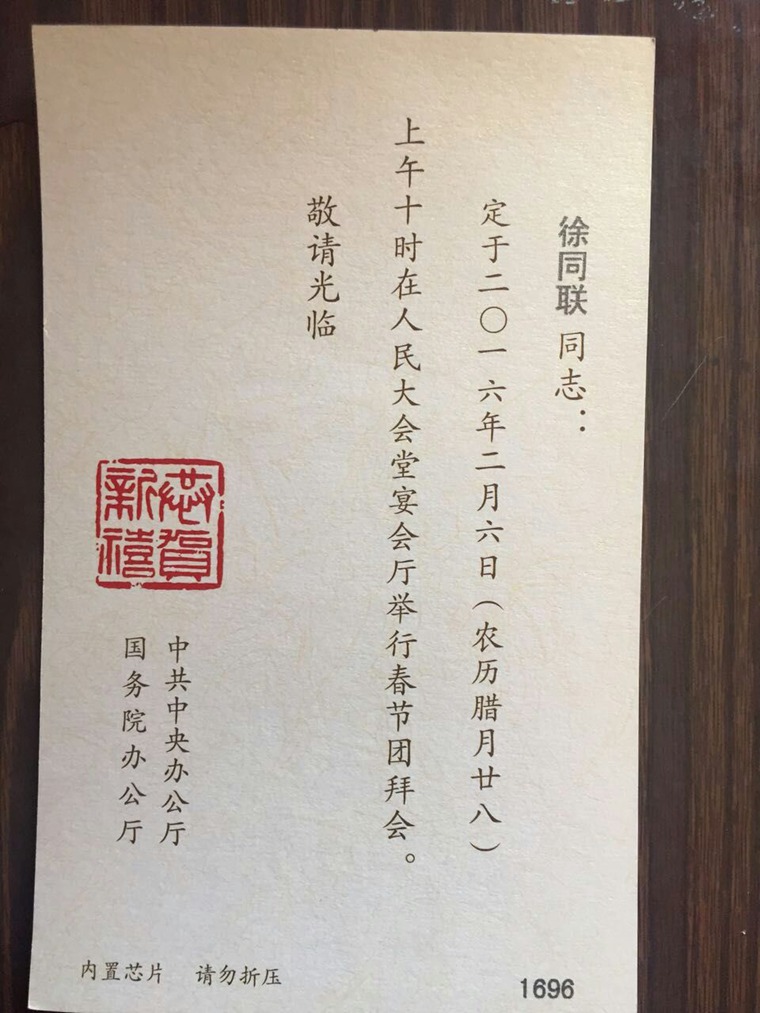 徐同联同志：
定于二〇一六年二月六日（农历腊月廿八）
上午十时在人民大会堂宴会厅举行春节团拜会。
敬请光临
恭贺
新禧
中共中央办公厅
国务院办公厅
内置芯片 请勿折压
1696